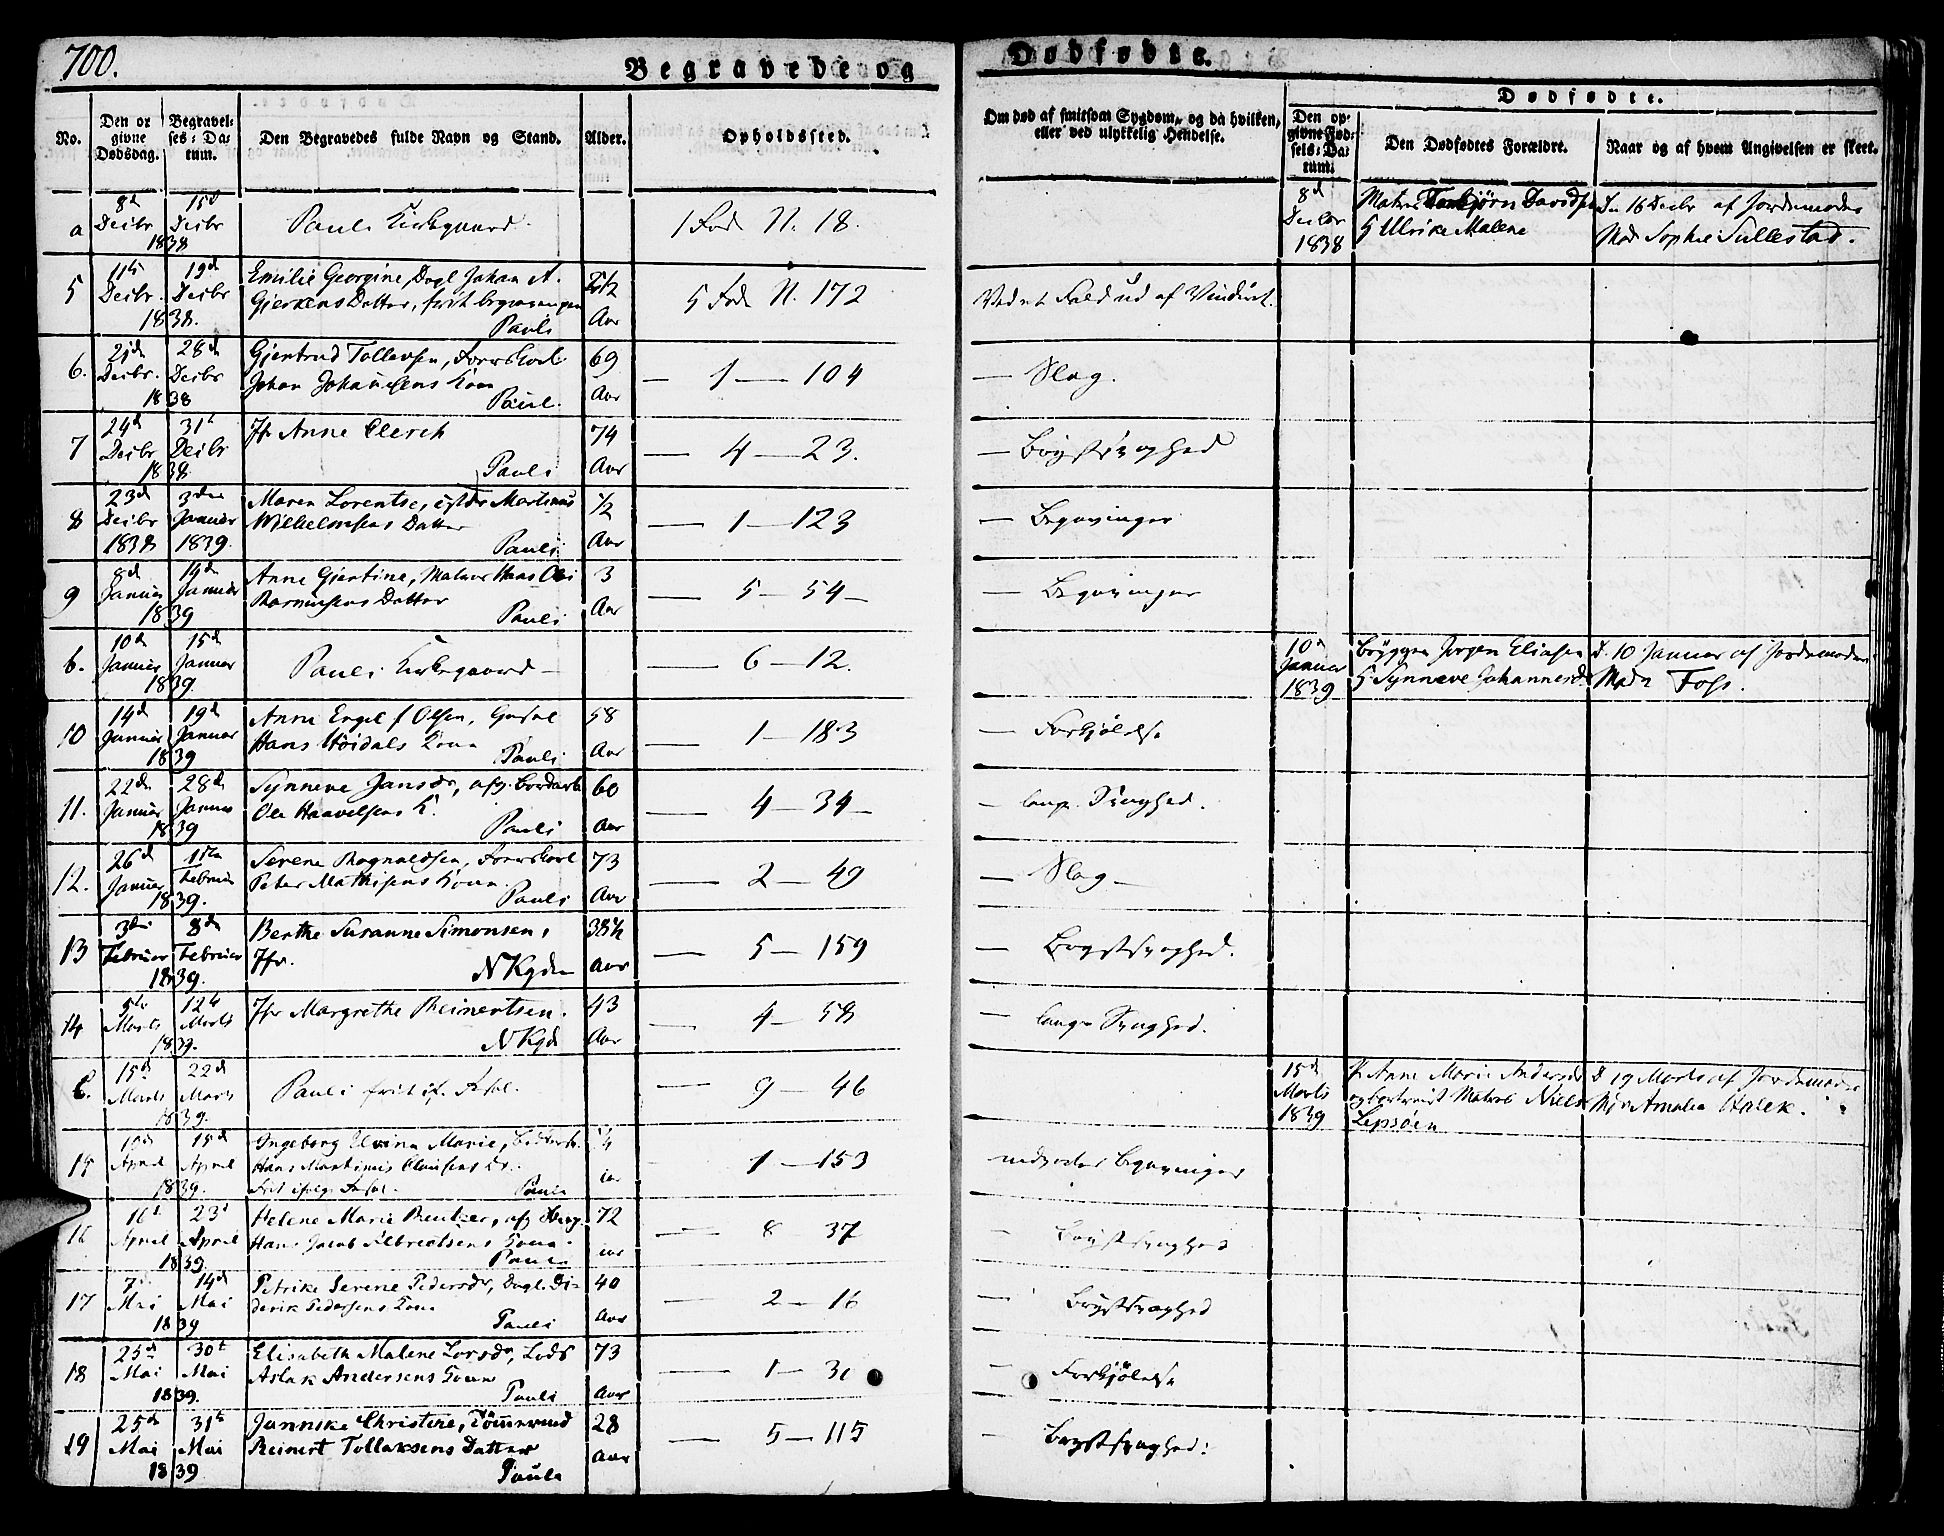 700.
Begravede og
Dødfødte.
No.
Den opgivne Dødsdag.
Begravelses-Datum.
Den Begravedes fulde Navn og Stand.
Alder.
Opholdssted.
Om død af smitsom Sygdom, og da hvilken,
eller ved ulykkelig Hendelse.
Dødfødte.
Den opgivne Fødsels-Datum.
Den Dødfødtes Forældre.
Naar og af hvem Angivelsen er skeet.
a 8d Decbr 15d Decbr 1838 Pauli Kirkegaard. 1 Rode N. 18. 8d Decbr 1838
Matros Torbjørn Davids
Ulrike Malene
16 Decbr af Jordemoder
Mad Sophie Sullestad.
5 11te Decbr. 19d Decbr 1838.
Emilie Georgine, Dagl Johan A.
Gjerkens Datter, frit
Pauli
Aar
5 Rode N. 172
Ved et Fald ud af Vinduet.
6. 21de Decbr. 28de Decbr 1838
Gjertrud Tollevsen,
Johan Johannesens Kone
Paul.
69 Aar
— 1 — 104
— Slag.
7 24d Decbr 31t Decbr 1838.
Jfr Anne Clerch
Pauli
74 Aar
— 4 — 23.
— Brystsyghed
8 23d Decbr 1838 3die Januar 1839.
Maren Lorentse, Martinus
Wilhelmsens Datter
Pauli
1/2 Aar
— 1 — 123
— Begavninger
9 8d Januar 14de Januar 1839
Anne Gjertine, Matros Hans Ole
Rasmusens Datter
Pauli
3 Aar
— 5 — 54 —
— Begavninger
b. 10d Januar 15d Januar 1839.
Pauli Kirkegaard —
— 6 — 12.
10d Januar 1839
Brygger Jørgen Eliasen
Synneve Johannesd
d. 10 Januar af Jordemoder
Mada Foss.
10 14d Januar 19d Januar 1839
Anne Engel f Olsen,
Hans Høidals Kone
Pauli
58 Aar
— 1 — 183
— Forkjølelse
11. 22de Januar 28de Januar 1839
Synneve Jansdr, afg.
Ole Haavelsens K.
Pauli
60 Aar
— 4 — 34 —
— lang. Syghed.
12. 26d Januar 1ste Februar 1839.
Serene Rognaldsen,
Peter Mathisens Kone
Pauli
73 Aar
— 2 — 49
— Slag —
13 3die Februar 8de Februar 1839.
Berthe Susanne Simonsen,
Jfr. N Kgden
38 1/2 Aar
— 5 — 159
— Brystsyghed.
14 5te Marts 12te Marts 1839.
Jfr Margrethe Reinertsen.
N Kgd
43 Aar
— 4 — 58
— lang Syghed.
c. 15d Marts 22d Marts 1839.
Pauli frit
— 9 — 46
15d Marts 1839
Anne Marie Andersdr
Matros Niels
Lepsøen
D 19 Marts af Jordemoder
Amalia Holek.
15 April 15d April 1839.
Ingeborg Elvina Marie,
Hans Martinus Clausens
Pauli
1/4
— 1 — 153
Begavninger
16 16t April 23d April 1839.
Helene Marie Reutzer, afg
Hans Jacob Albrectsens Kone.
Pauli
72
— 8 37
— Brystsyghed
17 7 Mai 14d Mai 1839
Petrike Serene Pedersdr, Dagl. Diderik Pedersens Kone
Pauli
40 Aar
— 2 — 16
— Brystsyghed
18 25d Mai 30t Mai 1839.
Elisabeth Malene Larsdr, Lods
Aslak Andersens Kone
Pauli
73 Aar
— 1 — 30
— Forkjølelse
19 25d Mai 31t Mai 1839
Jannike Christine, Tømmermand
Reinert Tollaksens Datter
Pauli
28 Aar
— 5 — 115
— Brystsyghed.